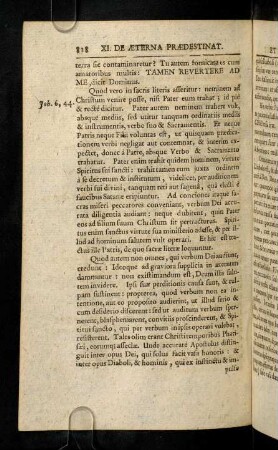 818 XI. DE ÆTERNA PRÆDESTINAT.
terra sic contaminaretur? Tu autem fornicata es cum
amatoribus multis: TAMEN REVERTERE AD
ME, dicit Dominus.
Quod vero in sacris literis asseritur: neminem ad
Joh. 6, 44. Christum venire posse, nisi Pater eum trahat; id piè
& rectè dicitur. Pater autem neminem trahere vult,
absque mediis, sed utitur tanquam ordinariis mediis
& instrumentis, verbo suo & Sacramentis. Et neque
Patris neque Filii voluntas est, ut quisquam prædica-
tionem verbi negligat aut contemnat, & interim ex-
pectet, donec à Patre, absque Verbo & Sacramentis
trahatur. Pater enim trahit quidem hominem, virtute
Spiritus sui sancti: trahit tamen eum juxta ordinem
à se decretum & institutum, videlicet, per auditionem
verbi sui divini, tanquam reti aut sagenâ, quâ electi è
faucibus Satanæ eripiuntur. Ad conciones itaque sa-
cras miseri peccatores conveniant, verbum Dei accu-
rata diligentia audiant: neque dubitent, quin Pater
eos ad filium suum Christum sit pertracturus. Spiri-
tus enim sanctus virtute sua ministerio adesse, & per
illud ad hominum salutem vult operari. Et hic est tra-
ctus ille Patris, de quo sacræ literæ loquuntur.
Quod autem non omnes, qui verbum Dei audiunt,
credunt: Ideoque ad graviora supplicia in æternum
damnantur: non existimandum est, Deum illis salu-
tem invidere. Ipsi suæ perditionis causa sunt, & cul-
pam sustinent: propterea, quòd verbum non ea in-
tentione, aut eo proposito audierint, ut illud seriò &
cum desiderio discerent: sed ut auditum verbum sper-
nerent, blasphemarent, convitiis proscinderent, & Spi-
ritui sancto, qui per verbum in ipsis operari volebat,
resisterent. Tales olim erant Christi temporibus Phari-
sæi, eorumque asseclæ. Unde accuratè Apostolus distin-
guit inter opus Dei, qui solus facit vasa honoris: &
inter opus Diaboli, & hominis, qui ex instinctu & im-
pulsu